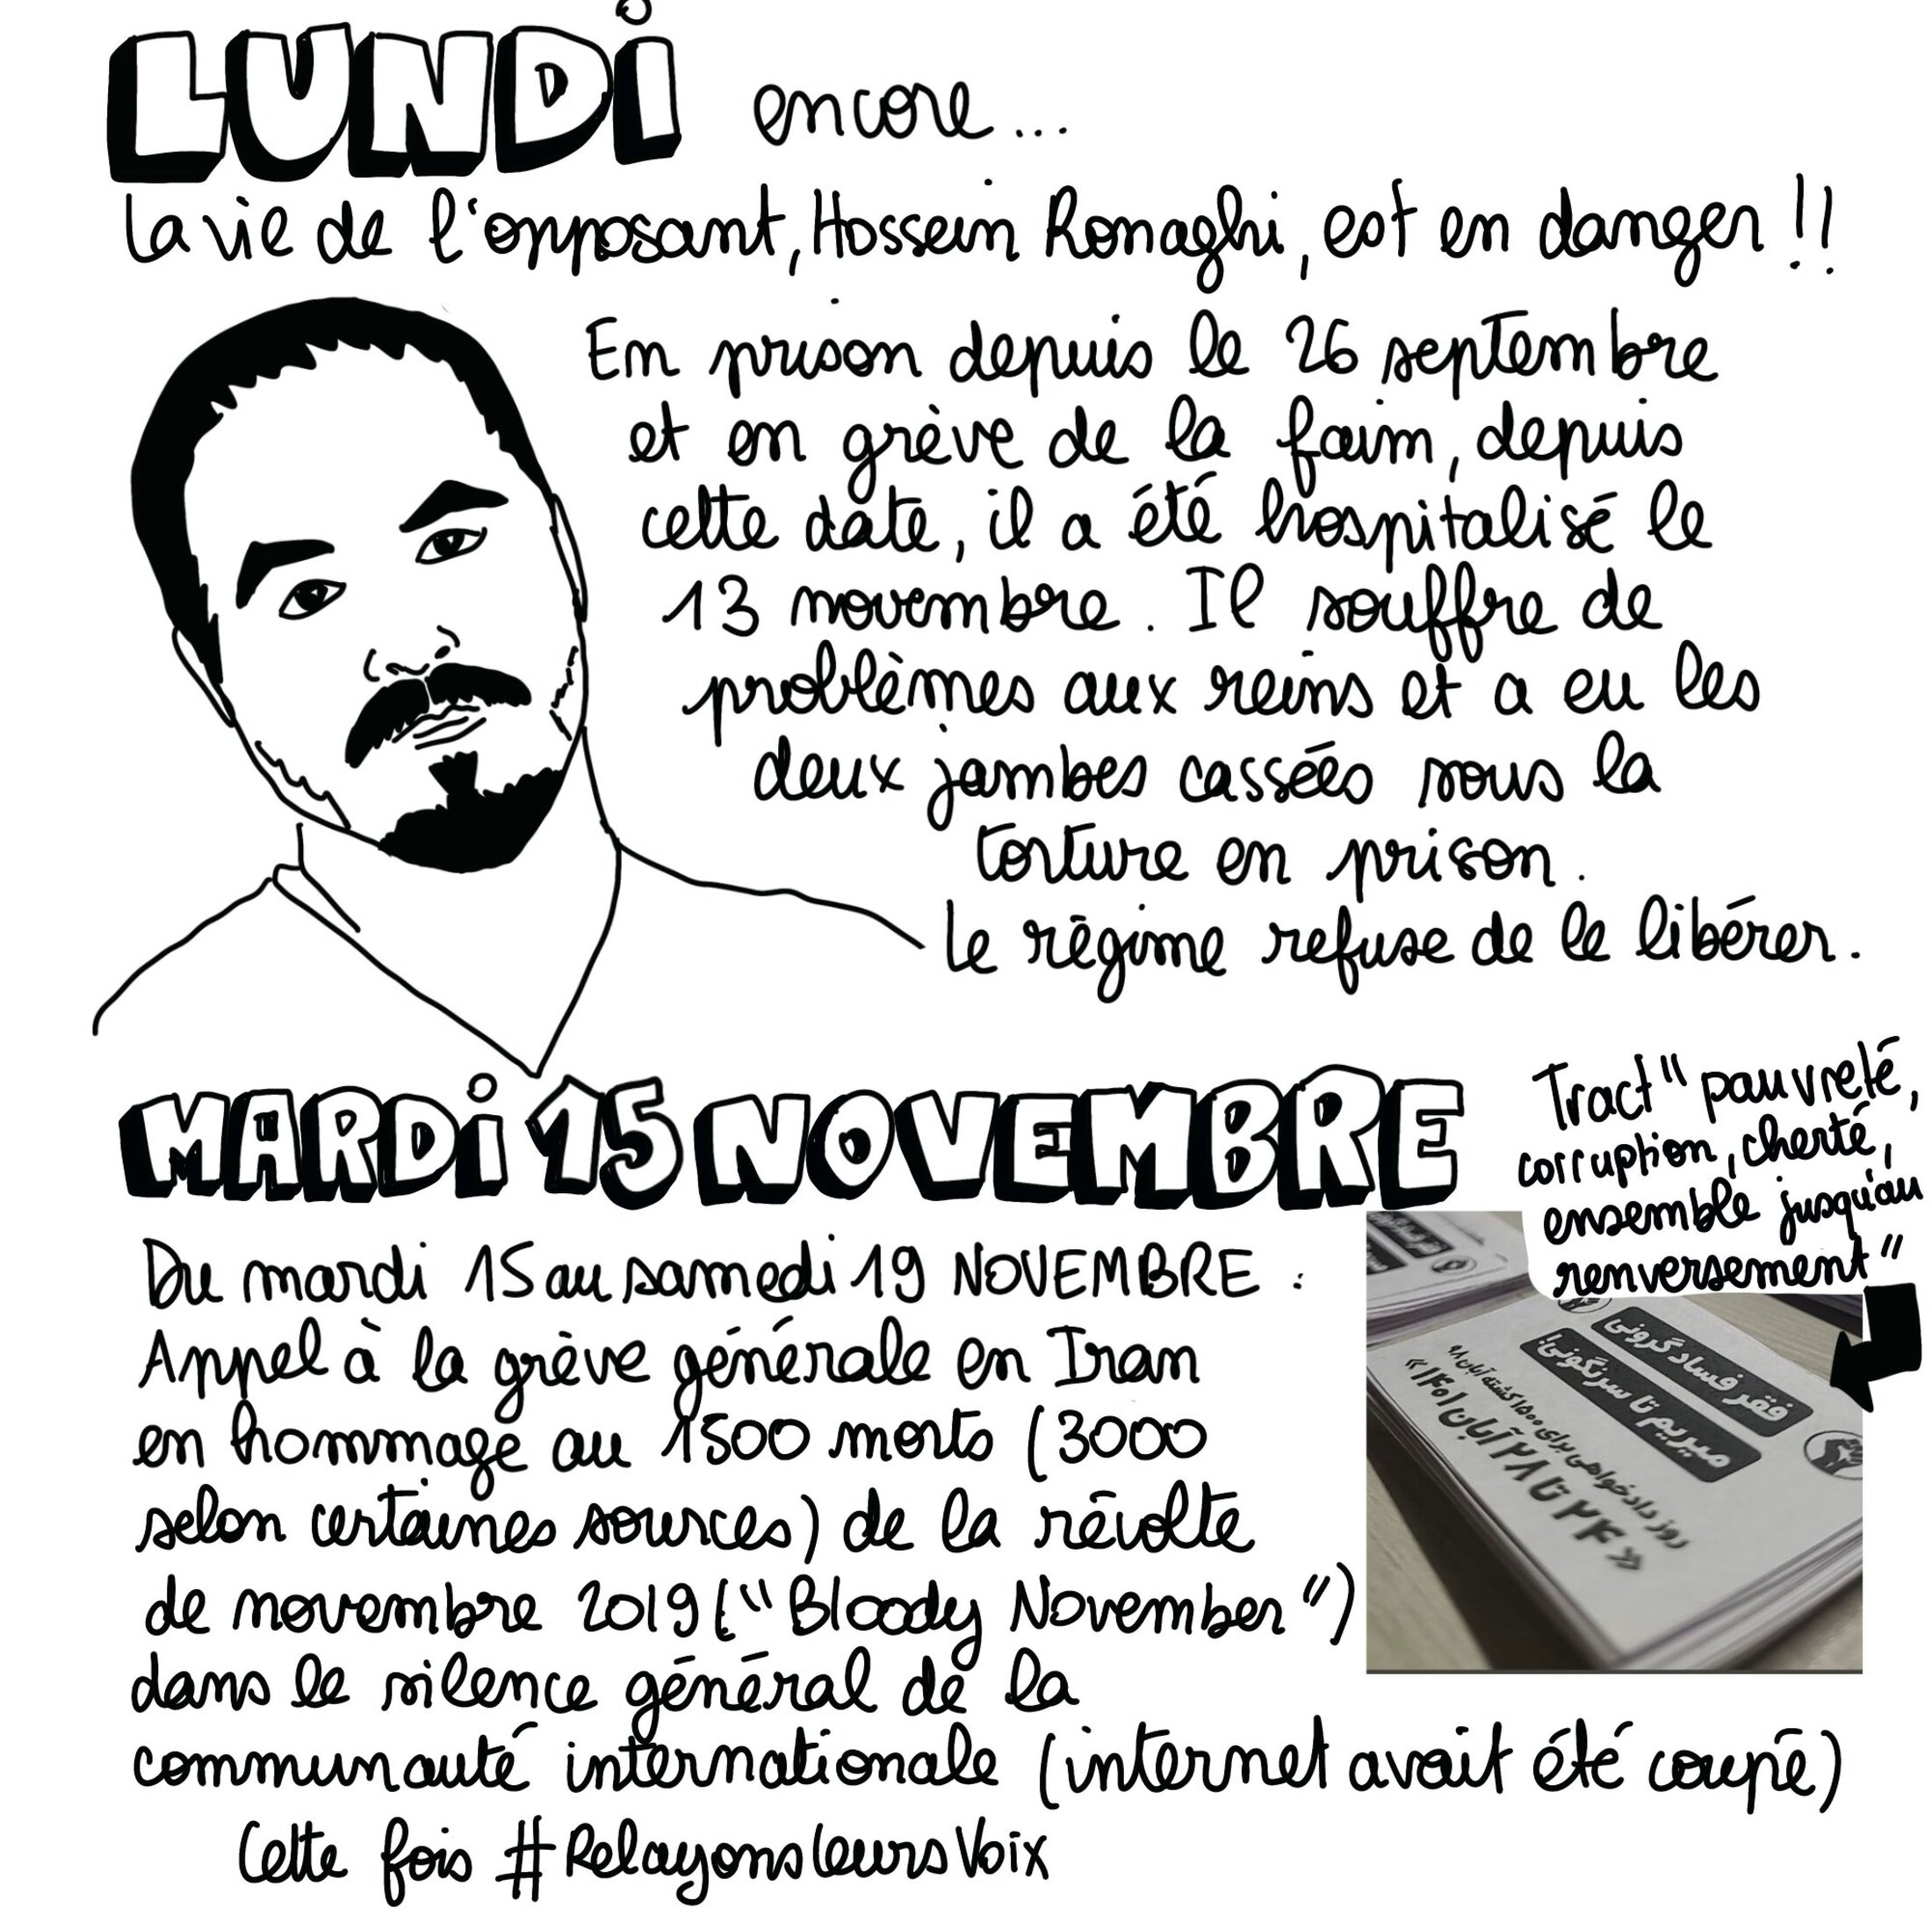 LUNDI encore...
La vie de l'opposant, Hossein Ronaghi, est en danger !!
En prison depuis le 26 septembre
et en grève de la faim, depuis
cette date, il a été hospitalisé le
13 novembre. Il souffre de
problèmes aux reins et a eu les
deux jambes cassées sous la
torture en prison.
Le régime refuse de le libérer.
MARDI 15 NOVEMBRE
Tract "pauvreté,
corruption, cherté,
ensemble jusqu'au
renversement"
Du mardi 15 au samedi 19 NOVEMBRE :
Appel à la grève générale en Iran
en hommage au 1500 morts (3000
selon certaines sources) de la révolte
de novembre 2019 ("Bloody November")
dans le silence général de la
communauté internationale (internet avait été coupé)
Cette fois #RelayonsleursVoix
فقر فساد گرونی
میریم تا سرنگونی!
روز دادخواهی برای ۱۵۰۰ کشته آبان ۹۸
«۲۴ تا ۲۸ آبان ۱۴۰۱»